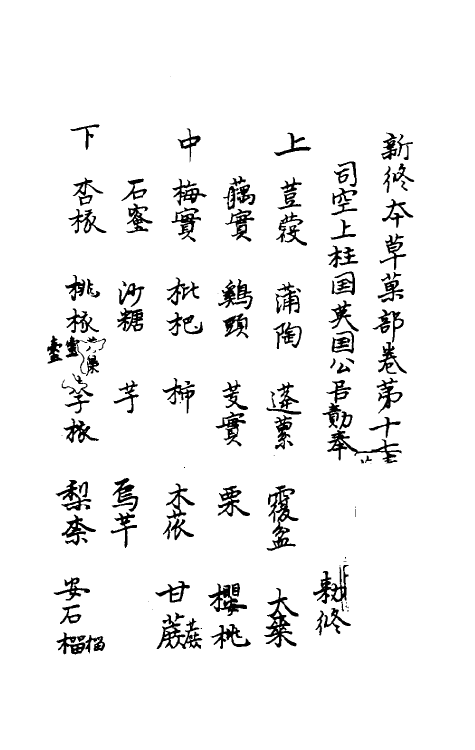 新修本草菓部卷第十七
司空上柱国英国公臣勣奉
勅修
上 荳蔻 蒲陶 蓬蔂 覆盆 大棗
藕實 鷄頭 芰實 栗 櫻桃
中 梅實 枇杷 柿 木苽 甘蔗
石蜜 沙糖 芋 烏芋
下 杏核 桃核 李核 梨 柰 安石榴